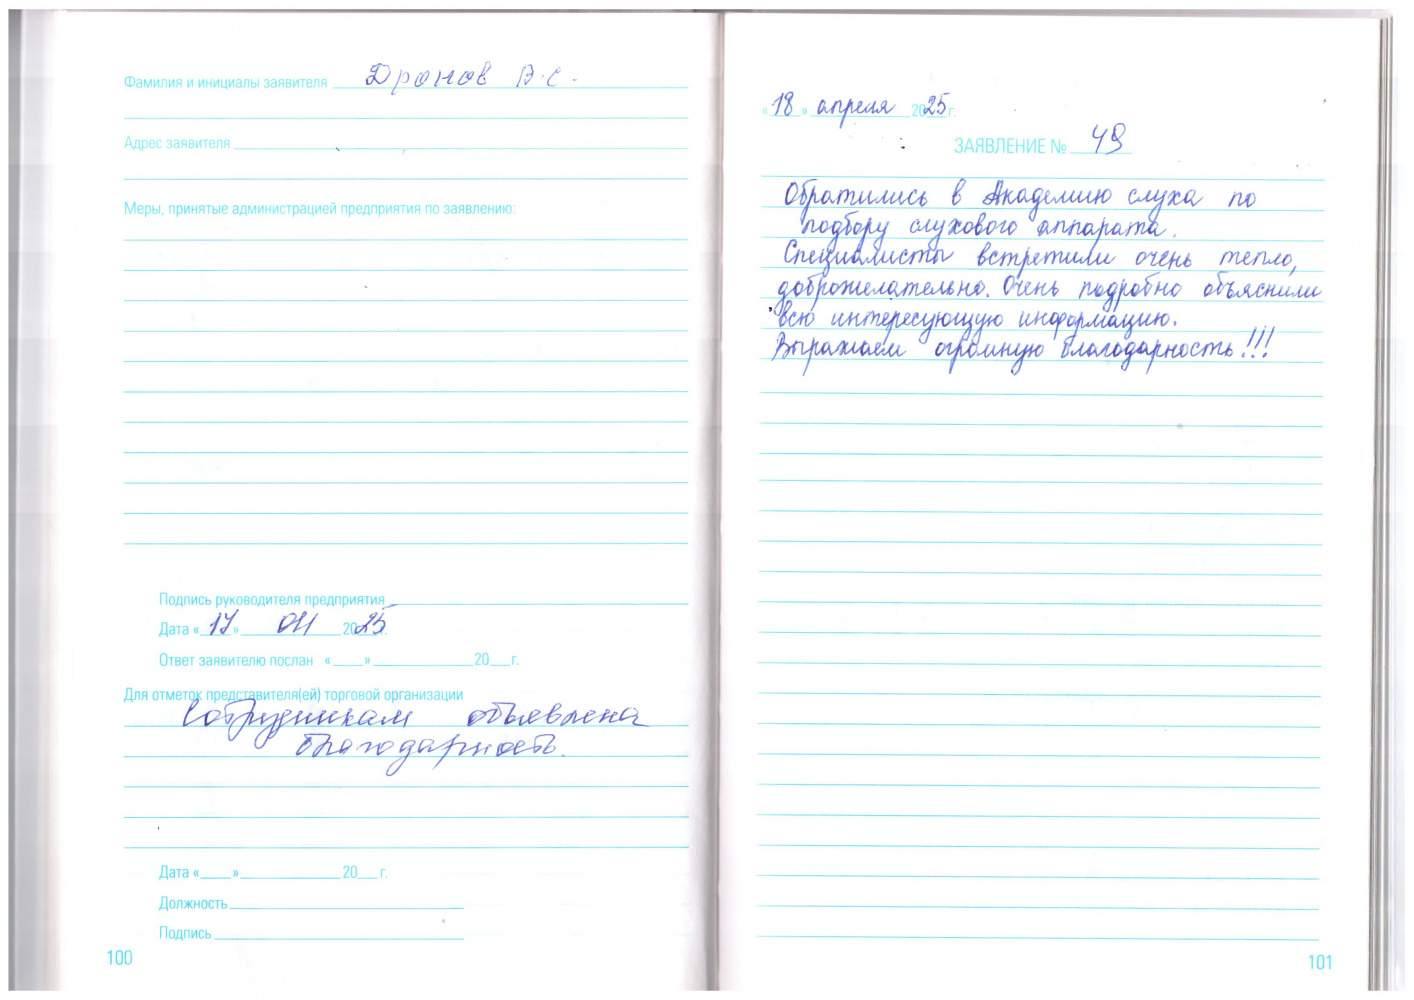 Фамилия и инициалы заявителя Дронов В.С.
Адрес заявителя
Меры, принятые администрацией предприятия по заявлению:
Подпись руководителя предприятия
Дата «17» 04 2025г.
Ответ заявителю послан « » 20 г.
Для отметок представителя(ей) торговой организации
Сотрудникам объявлена
благодарность.
Дата « » 20 г.
Должность
Подпись
100
«18» апреля 2025г.
ЗАЯВЛЕНИЕ № 49
Обратились в Академию слуха по
подбору слухового аппарата.
Специалисты встретили очень тепло,
доброжелательно. Очень подробно объяснили
всю интересующую информацию.
Выражаем огромную благодарность!!!
101